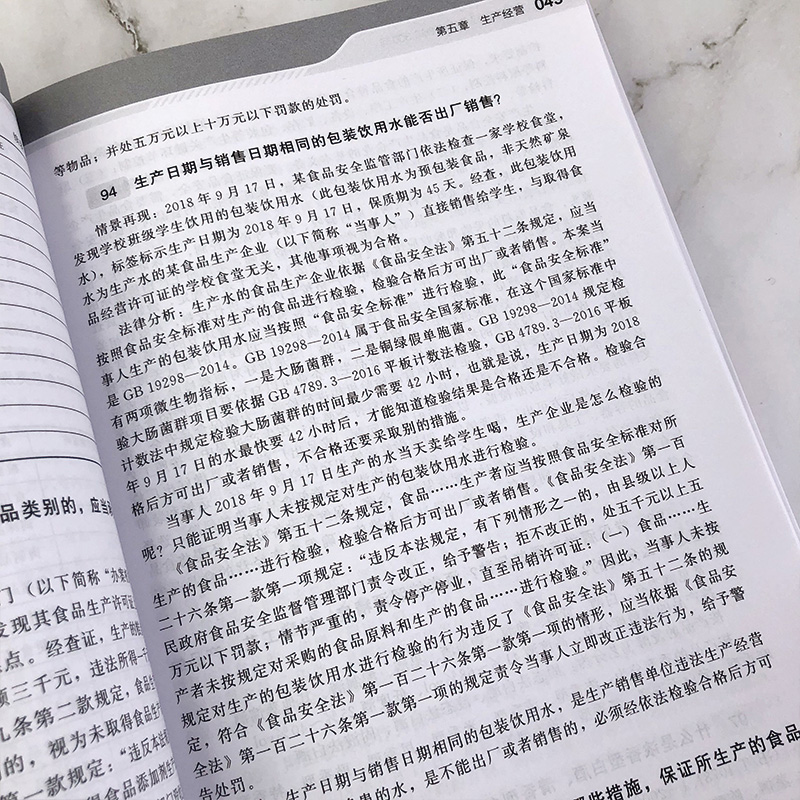 第五章 生产经营 043
等物品；并处五万元以上十万元以下罚款的处罚。
94 生产日期与销售日期相同的包装饮用水能否出厂销售？
情景再现：2018 年 9 月 17 日，某食品安全监管部门依法检查一家学校食堂，
发现学校班级学生饮用的包装饮用水（此包装饮用水为预包装食品，非天然矿泉
水），标签标示生产日期为 2018 年 9 月 17 日，保质期为 45 天。经查，此包装饮用
水为生产水的某食品生产企业（以下简称“当事人”）直接销售给学生，与取得食
品经营许可证的学校食堂无关，其他事项视为合格。
法律分析：生产水的食品生产企业依据《食品安全法》第五十二条规定，应当
按照食品安全标准对生产的食品进行检验，检验合格后方可出厂或者销售。本案当
事人生产的包装饮用水应当按照“食品安全标准”进行检验，此“食品安全标准”
是 GB 19298—2014。GB 19298—2014 属于食品安全国家标准，在这个国家标准中
有两项微生物指标，一是大肠菌群，二是铜绿假单胞菌。GB 19298—2014 规定检
验大肠菌群项目要依据 GB 4789.3—2016 平板计数法检验，GB 4789.3—2016 平板
计数法中规定检验大肠菌群的时间最少需要 42 小时，也就是说，生产日期为 2018
年 9 月 17 日的水最快要 42 小时后，才能知道检验结果是合格还是不合格。检验合
格后方可出厂或者销售，不合格还要采取别的措施。
当事人 2018 年 9 月 17 日生产的水当天卖给学生喝，生产企业是怎么检验的
呢？只能证明当事人未按规定对生产的包装饮用水进行检验。
《食品安全法》第五十二条规定，食品……生产者应当按照食品安全标准对所
生产的食品……进行检验，检验合格后方可出厂或者销售。《食品安全法》第一百
二十六条第一款第一项规定：“违反本法规定，有下列情形之一的，由县级以上人
民政府食品安全监督管理部门责令改正，给予警告；拒不改正的，处五千元以上五
万元以下罚款；情节严重的，责令停产停业，直至吊销许可证：（一）食品……生
产者未按规定对采购的食品原料和生产的食品……进行检验。”因此，当事人未按
规定对生产的包装饮用水进行检验的行为违反了《食品安全法》第五十二条的规
定，符合《食品安全法》第一百二十六条第一款第一项的情形，应当依据《食品安
全法》第一百二十六条第一款第一项的规定责令当事人立即改正违法行为，给予警
告处罚。
生产日期与销售日期相同的包装饮用水，是生产销售单位违法生产经营
的水，是不能出厂或者销售的，必须经依法检验合格后方可
些措施，保证所生产的食品
品类别的，应当
门（以下简称“办案
发现其食品生产许可证
点。经查证，生产的
项三千元，违法所得一
九条第二款规定，食品
的，视为未取得食品生
第一款规定：“违反本法
得食品添加剂生